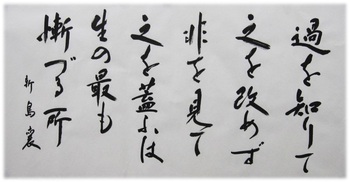 過を知りて
之を改めず
非を見て
之を蓋ふは
生の最も
慚づる所
新島襄